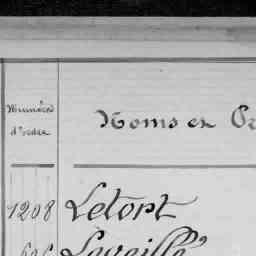 Numéros
d'ordre
Noms et Pr
1208 Letort
Laveillé